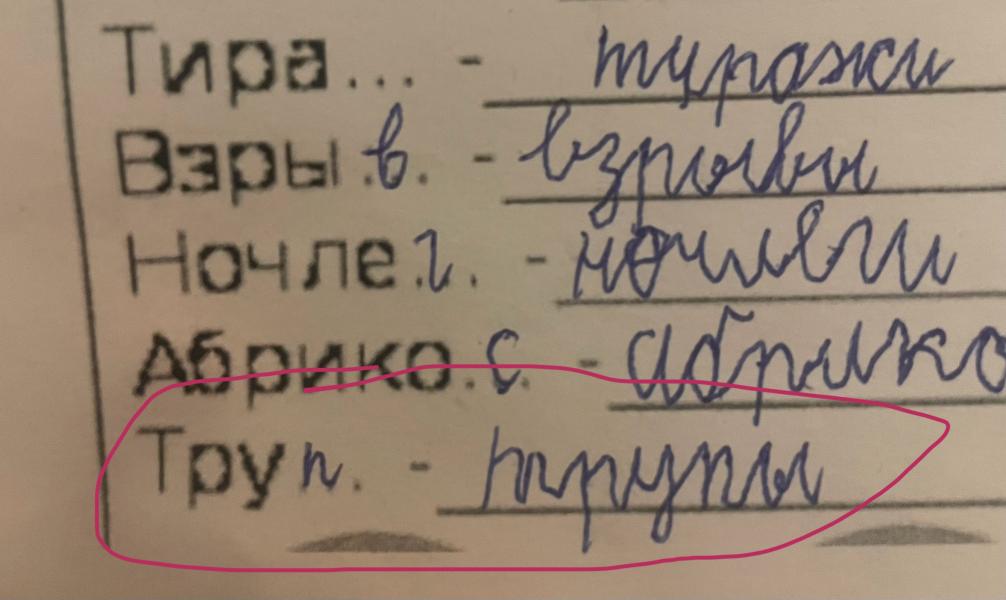 Тира... - тиражи
Взры.в. - взрывы
Ночле.г. - ночлеги
Абрико.с. - абрико
Труп. - трупы